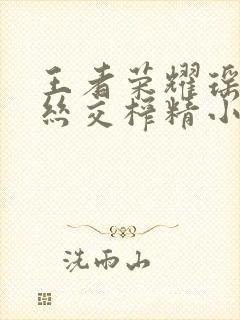 王者荣耀瑶
丝交榨精小
洗雨山